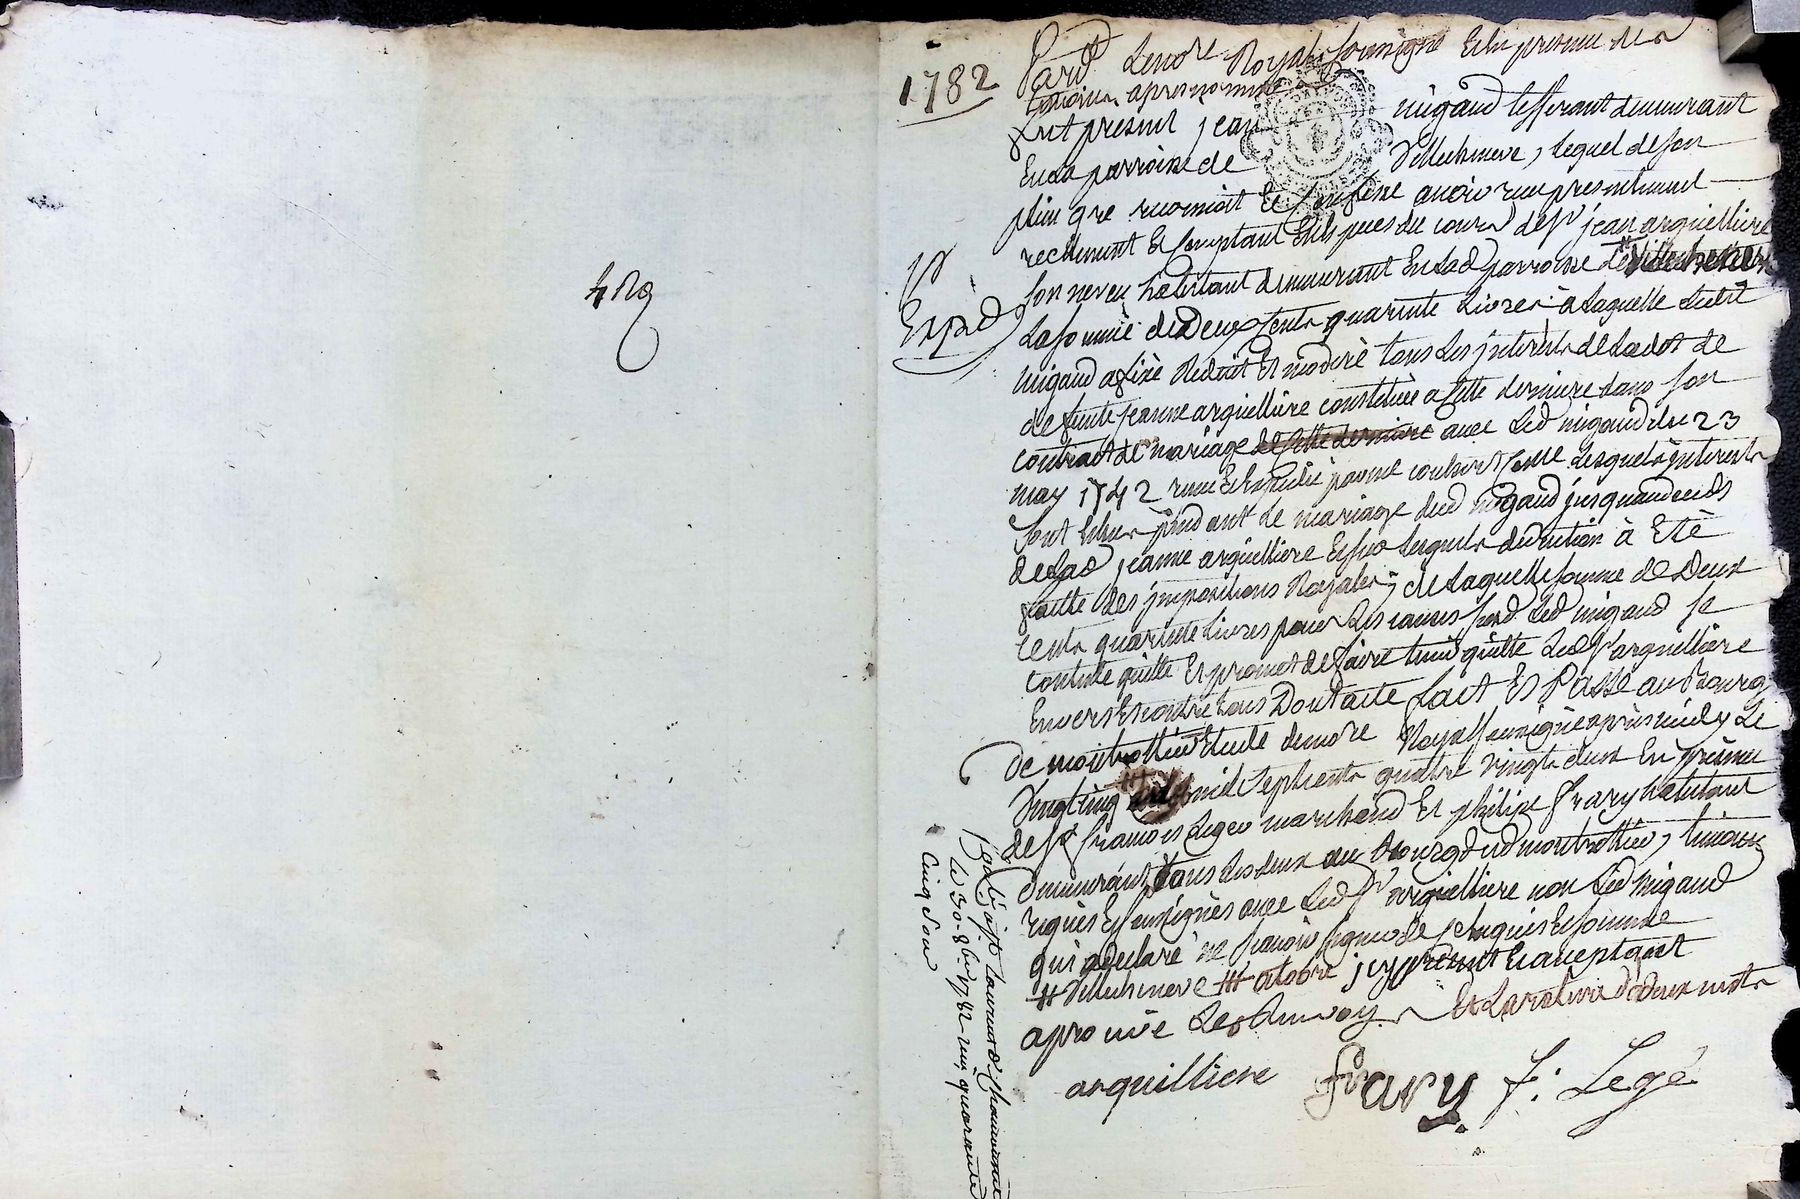 1782
Pard^t Le no^re Royal soussigné Et En presence des
temoins apres nommés
fut present jean migaud tisserant demeurant
En la parroisse de Villecheneve, lequel de son
plein gre reconnoit Et Confesse avoir reçu presentement
reellement Et Comptant En Especes du cours de s^r jean arguilliere
son neveu habitant demeurant En lad parroisse de
La somme de Deux Cents quarante Livres à laquelle ledit
migaud a fixé Reduit Et modéré tous Les jnterêts de La dot de
defunte jeanne arguilliere constituée a cette derniere dans son
contract de mariage de cette derniere avec led migaud du 23
may 1742 reçu Et Expedié par me desquels jnterests
sont Echus pendant le mariage dud migaud jusquau deces
de lad jeanne arguilliere Et sur lesquels deduction à Eté
faitte des jmpositions Royales; de Laquelle somme de Deux
cents quarante Livres pour Les causes susd Led migaud se
contente quitte Et promet de faire tenir quitte Led s^r arguilliere
Envers Et contre tous Dont acte fait Et Passé au Bourg
de montrottier Etude de no^re Royal soussigné après midy Le
Vingt cinq mil sept cents quatre vingts deux En presence
de s^r françois Leger marchand Et philipe frary habitant
demeurant tous Les deux au Bourg dud montrottier, temoins
requis Et soussignés avec Led s^r arguilliere non Led migaud
qui a declaré ne sçavoir signer de ce Enquis Et sommé
# Villecheneve ## octobre jcy present Et acceptant
aprouvé Les Renvoys Et La rature De deux mots
arquilliere frary f: Legé
1^re
Exped
Cont^lé à s^t Laurent de chamousset
le 30. 8bre 1782 reçu quarante
Cinq sous